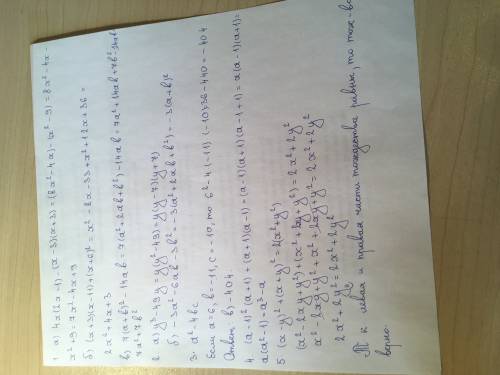 1. а) 4x(2x-1) - (x-3)(x+3) = (8x²-4x) - (x²-9) = 8x²-4x-
x²+9 = 7x²-4x+9
б) (x+3)(x-11)+(x+6)² = x²-8x-33+x²+12x+36 =
2x²+4x+3
в) 7(a+b)²-14ab = 7(a²+2ab+b²)-14ab = 7a²+14ab+7b²-14ab
7a²+7b²
2. а) y³-49y = y(y²-49) = y(y-7)(y+7)
б) -3a²-6ab-3b² = -3(a²+2ab+b²) = -3(a+b)²
3. a²-4bc
Если a=6, b=-11, c=-10, то 6²-4·(-11)·(-10)=36-440=-404
Ответ: в) -404
4. (a-1)²(a+1)+(a+1)(a-1) = (a-1)(a+1)(a-1+1) = a(a-1)(a+1) =
a(a²-1) = a³-a
5. (x-y)²+(x+y)² = 2(x²+y²)
(x²-2xy+y²)+(x²+2xy+y²) = 2x²+2y²
x²-2xy+y²+x²+2xy+y² = 2x²+2y²
2x²+2y² = 2x²+2y²
Т к левая и правая части тождества равны, то тож-во
верно.